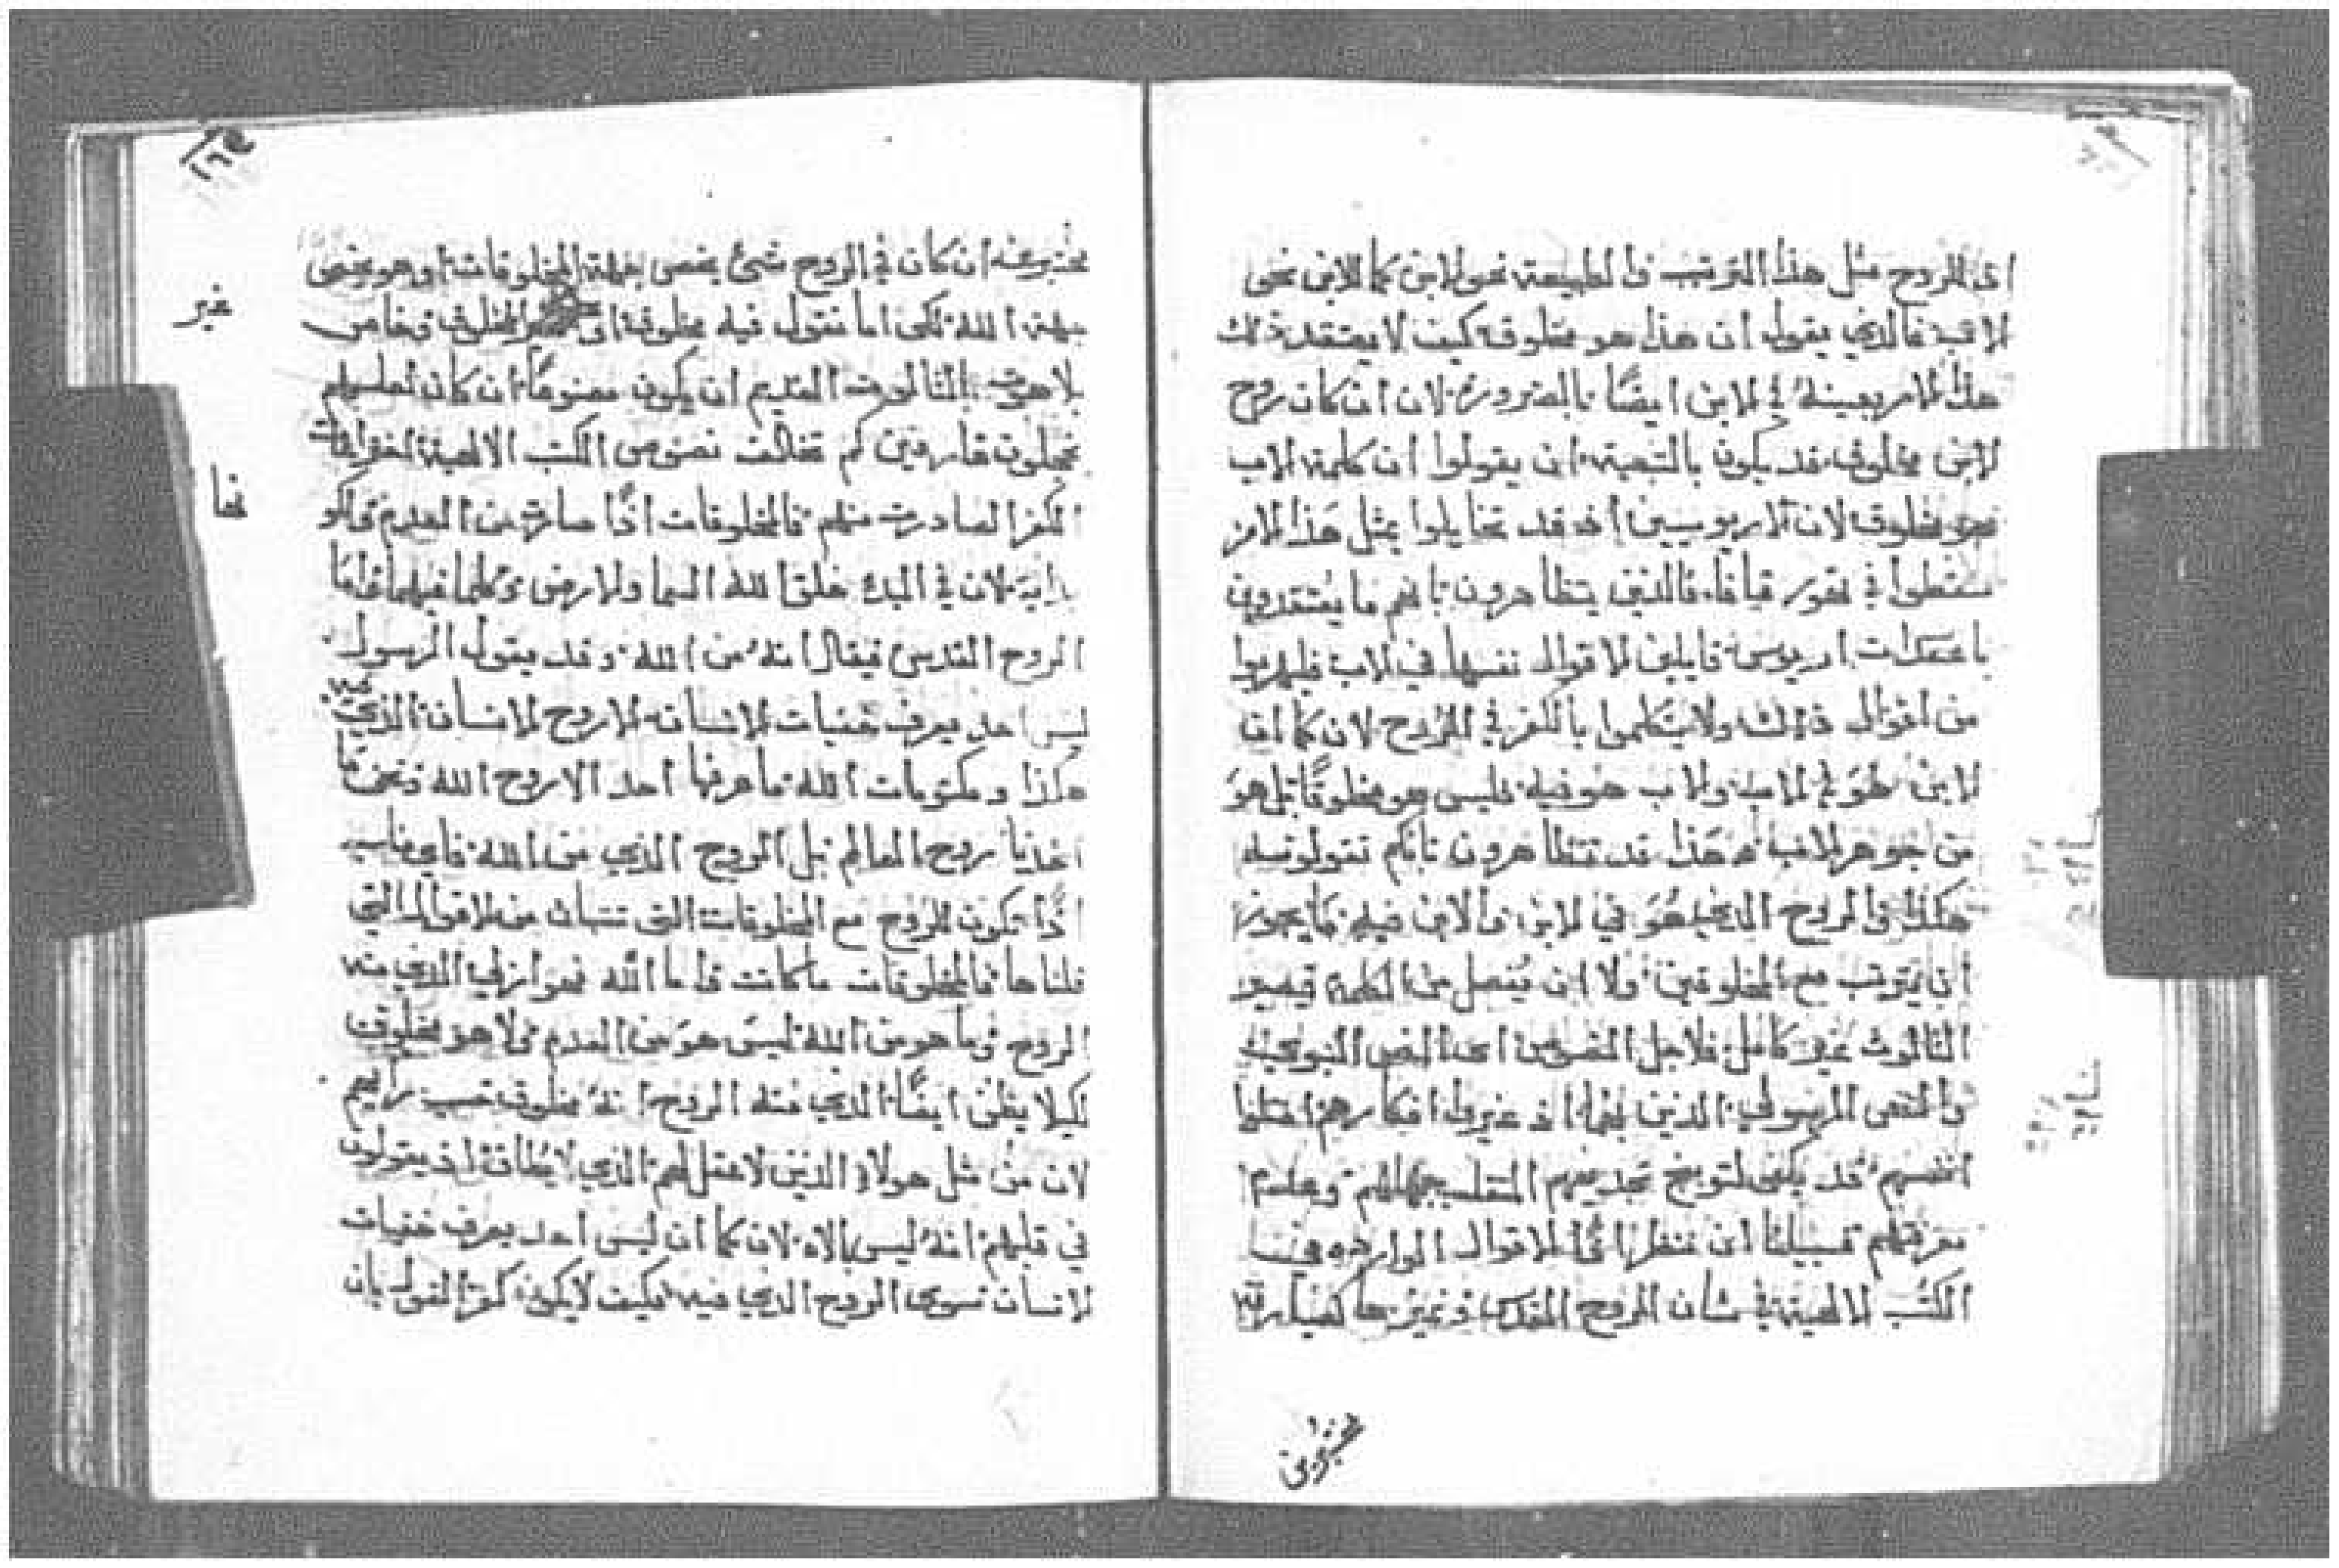 اذ للروح مثل هذا الترتيب والطبيعة نحو الابن كما للابن نحو
الاب فالذي يقول ان هذا هو مخلوقه كيف لا يعتقد ذلك
هذا الامر بعينه في الابن ايضًا بالضرورة لان ان كان روح
الابن مخلوق قد يكون بالتبعية ان يقولوا ان كلمة الاب
هو مخلوق لان الاريوسيين اذ قد تخايلوا بمثل هذا الامر
سقطوا في فالذين يتظاهرون بانهم ما يعتقدون
باعتقادات اريوس قايلين الاقوال نفسها في الاب فليهربوا
من اقوال ذلك ولا يتكلموا بالكفر في الروح لان كما ان
الابن هو في الاب والاب هو فيه فليس هو مخلوقًا بل هو
من جوهر الاب وهذا قد تتظاهرون بانكم تقولونه
هكذا والروح الذي هو في الابن والابن فيه ما يجوز
ان يترتب مع المخلوقين ولا ان يُفصل من الكلمة فيصير
الثالوث غير كامل فلاجل النصين اعني النص النبوي
والنص الرسولي الذين بهما اذ غيروا افكارهم اضلوا
انفسهم قد يكفي لتوبيخ تجديفهم المتقلب بجهلهم وعدم
معرفتهم فسبيلنا ان ننظر الاقوال الواردة من
الكتب الالهية في شان الروح القدس ونميزها كصيارف
مختبرين
١٦٥
مختبرين ان كان في الروح شئ يخص بجهة المخلوقات او هو يخص
بجهة الله لكي اما نقول فيه مخلوقًا او المخلوق وخاص
غير
بلاهوت الثالوث القديم ان يكون مصنوعًا ان كان لعلهم
يخجلون عارفين كم تخالف نصوص الكتب الالهية الخرافات
الكفر الصادرة منهم فالمخلوقات اذًا صارت من العدم
فما
بداية لان في البدء خلق الله السما والارض وكلما فيهما فاما
الروح القدس فيقال انه من الله وقد يقول الرسول
ليس احد يعرف خفيات الانسان الا روح الانسان الذي فيه
هكذا ومكتومات الله ما عرفها احد الا روح الله ونحن ما
اخذنا روح العالم بل الروح الذي من الله فاي مناسبه
اذًا تكون للروح مع المخلوقات التي تثبت من الاقوال التي
قلناها فالمخلوقات ما كانت فاما الله فهو ازلي الذي منه
الروح وما هو من الله ليس هو من العدم ولا هو مخلوق
لكيلا يظن ايضًا الذي منه الروح انه مخلوق حسب رايهم
لان من مثل هولاء الذين لا عقل لهم الذي لا يُطاق اذ يقولون
في قلبهم انه ليس الاه لان كما ان ليس احد يعرف خفيات
الانسان سوى الروح الذي فيه فكيف لا يكون كفر القول بان